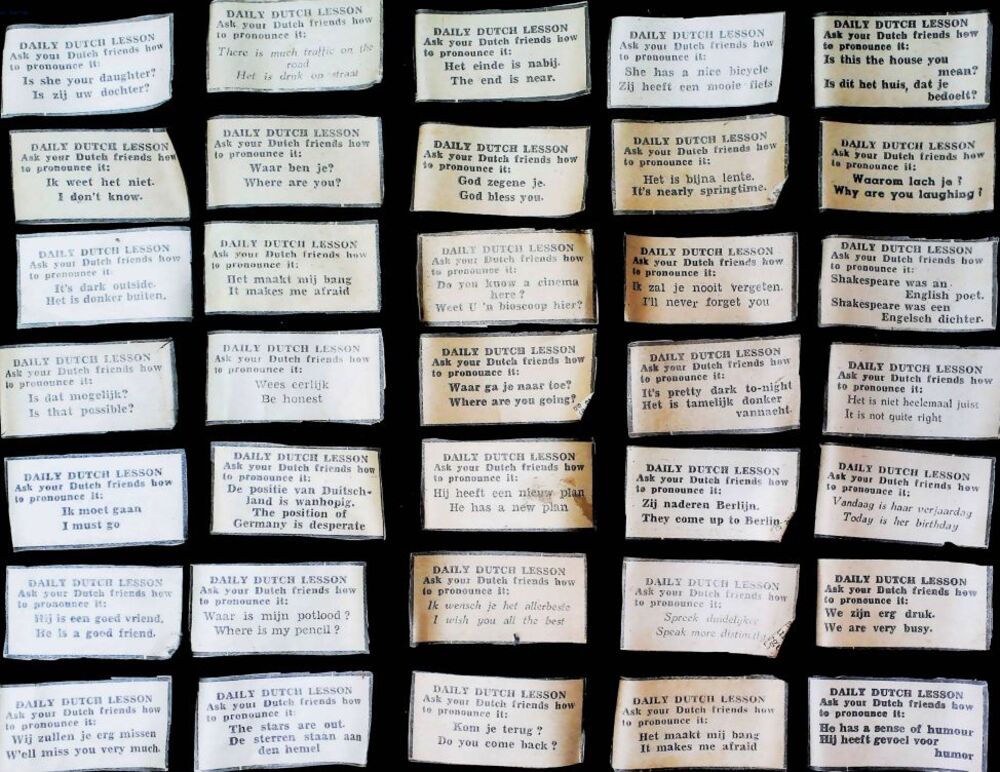 DAILY DUTCH LESSON
Ask your Dutch friends how
to pronounce it:
Is she your daughter?
Is zij uw dochter?
DAILY DUTCH LESSON
Ask your Dutch friends how
to pronounce it:
There is much traffic on the
road
Het is druk op straat
DAILY DUTCH LESSON
Ask your Dutch friends how
to pronounce it:
Het einde is nabij.
The end is near.
DAILY DUTCH LESSON
Ask your Dutch friends how
to pronounce it:
She has a nice bicycle
Zij heeft een mooie fiets
DAILY DUTCH LESSON
Ask your Dutch friends how
to pronounce it:
Is this the house you
mean?
Is dit het huis, dat je
bedoelt?
DAILY DUTCH LESSON
Ask your Dutch friends how
to pronounce it:
Ik weet het niet.
I don't know.
DAILY DUTCH LESSON
Ask your Dutch friends how
to pronounce it:
Waar ben je?
Where are you?
DAILY DUTCH LESSON
Ask your Dutch friends how
to pronounce it:
God zegene je.
God bless you.
DAILY DUTCH LESSON
Ask your Dutch friends how
to pronounce it:
Het is bijna lente.
It's nearly springtime.
DAILY DUTCH LESSON
Ask your Dutch friends how
to pronounce it:
Waarom lach je ?
Why are you laughing ?
DAILY DUTCH LESSON
Ask your Dutch friends how
to pronounce it:
It's dark outside.
Het is donker buiten.
DAILY DUTCH LESSON
Ask your Dutch friends how
to pronounce it:
Het maakt mij bang
It makes me afraid
DAILY DUTCH LESSON
Ask your Dutch friends how
to pronounce it:
Do you know a cinema
here ?
Weet U 'n bioscoop hier?
DAILY DUTCH LESSON
Ask your Dutch friends how
to pronounce it:
Ik zal je nooit vergeten.
I'll never forget you
DAILY DUTCH LESSON
Ask your Dutch friends how
to pronounce it:
Shakespeare was an
English poet.
Shakespeare was een
Engelsch dichter.
DAILY DUTCH LESSON
Ask your Dutch friends how
to pronounce it:
Is dat mogelijk?
Is that possible?
DAILY DUTCH LESSON
Ask your Dutch friends how
to pronounce it:
Wees eerlijk
Be honest
DAILY DUTCH LESSON
Ask your Dutch friends how
to pronounce it:
Waar ga je naar toe?
Where are you going?
DAILY DUTCH LESSON
Ask your Dutch friends how
to pronounce it:
It's pretty dark to-night
Het is tamelijk donker
vannacht.
DAILY DUTCH LESSON
Ask your Dutch friends how
to pronounce it:
Het is niet heelemaal juist
It is not quite right
DAILY DUTCH LESSON
Ask your Dutch friends how
to pronounce it:
Ik moet gaan
I must go
DAILY DUTCH LESSON
Ask your Dutch friends how
to pronounce it:
De positie van Duitsch-
land is wanhopig.
The position of
Germany is desperate
DAILY DUTCH LESSON
Ask your Dutch friends how
to pronounce it:
Hij heeft een nieuw plan
He has a new plan
DAILY DUTCH LESSON
Ask your Dutch friends how
to pronounce it:
Zij naderen Berlijn.
They come up to Berlin
DAILY DUTCH LESSON
Ask your Dutch friends how
to pronounce it:
Vandaag is haar verjaardag
Today is her birthday
DAILY DUTCH LESSON
Ask your Dutch friends how
to pronounce it:
Hij is een goed vriend.
He is a good friend.
DAILY DUTCH LESSON
Ask your Dutch friends how
to pronounce it:
Waar is mijn potlood ?
Where is my pencil ?
DAILY DUTCH LESSON
Ask your Dutch friends how
to pronounce it:
Ik wensch je het allerbeste
I wish you all the best
DAILY DUTCH LESSON
Ask your Dutch friends how
to pronounce it:
Spreek duidelijker
Speak more
DAILY DUTCH LESSON
Ask your Dutch friends how
to pronounce it:
We zijn erg druk.
We are very busy.
DAILY DUTCH LESSON
Ask your Dutch friends how
to pronounce it:
Wij zullen je erg missen
W'ell miss you very much.
DAILY DUTCH LESSON
Ask your Dutch friends how
to pronounce it:
The stars are out.
De sterren staan aan
den hemel
DAILY DUTCH LESSON
Ask your Dutch friends how
to pronounce it:
Kom je terug ?
Do you come back ?
DAILY DUTCH LESSON
Ask your Dutch friends how
to pronounce it:
Het maakt mij bang
It makes me afraid
DAILY DUTCH LESSON
Ask your Dutch friends how
to pronounce it:
He has a sense of humour
Hij heeft gevoel voor
humor